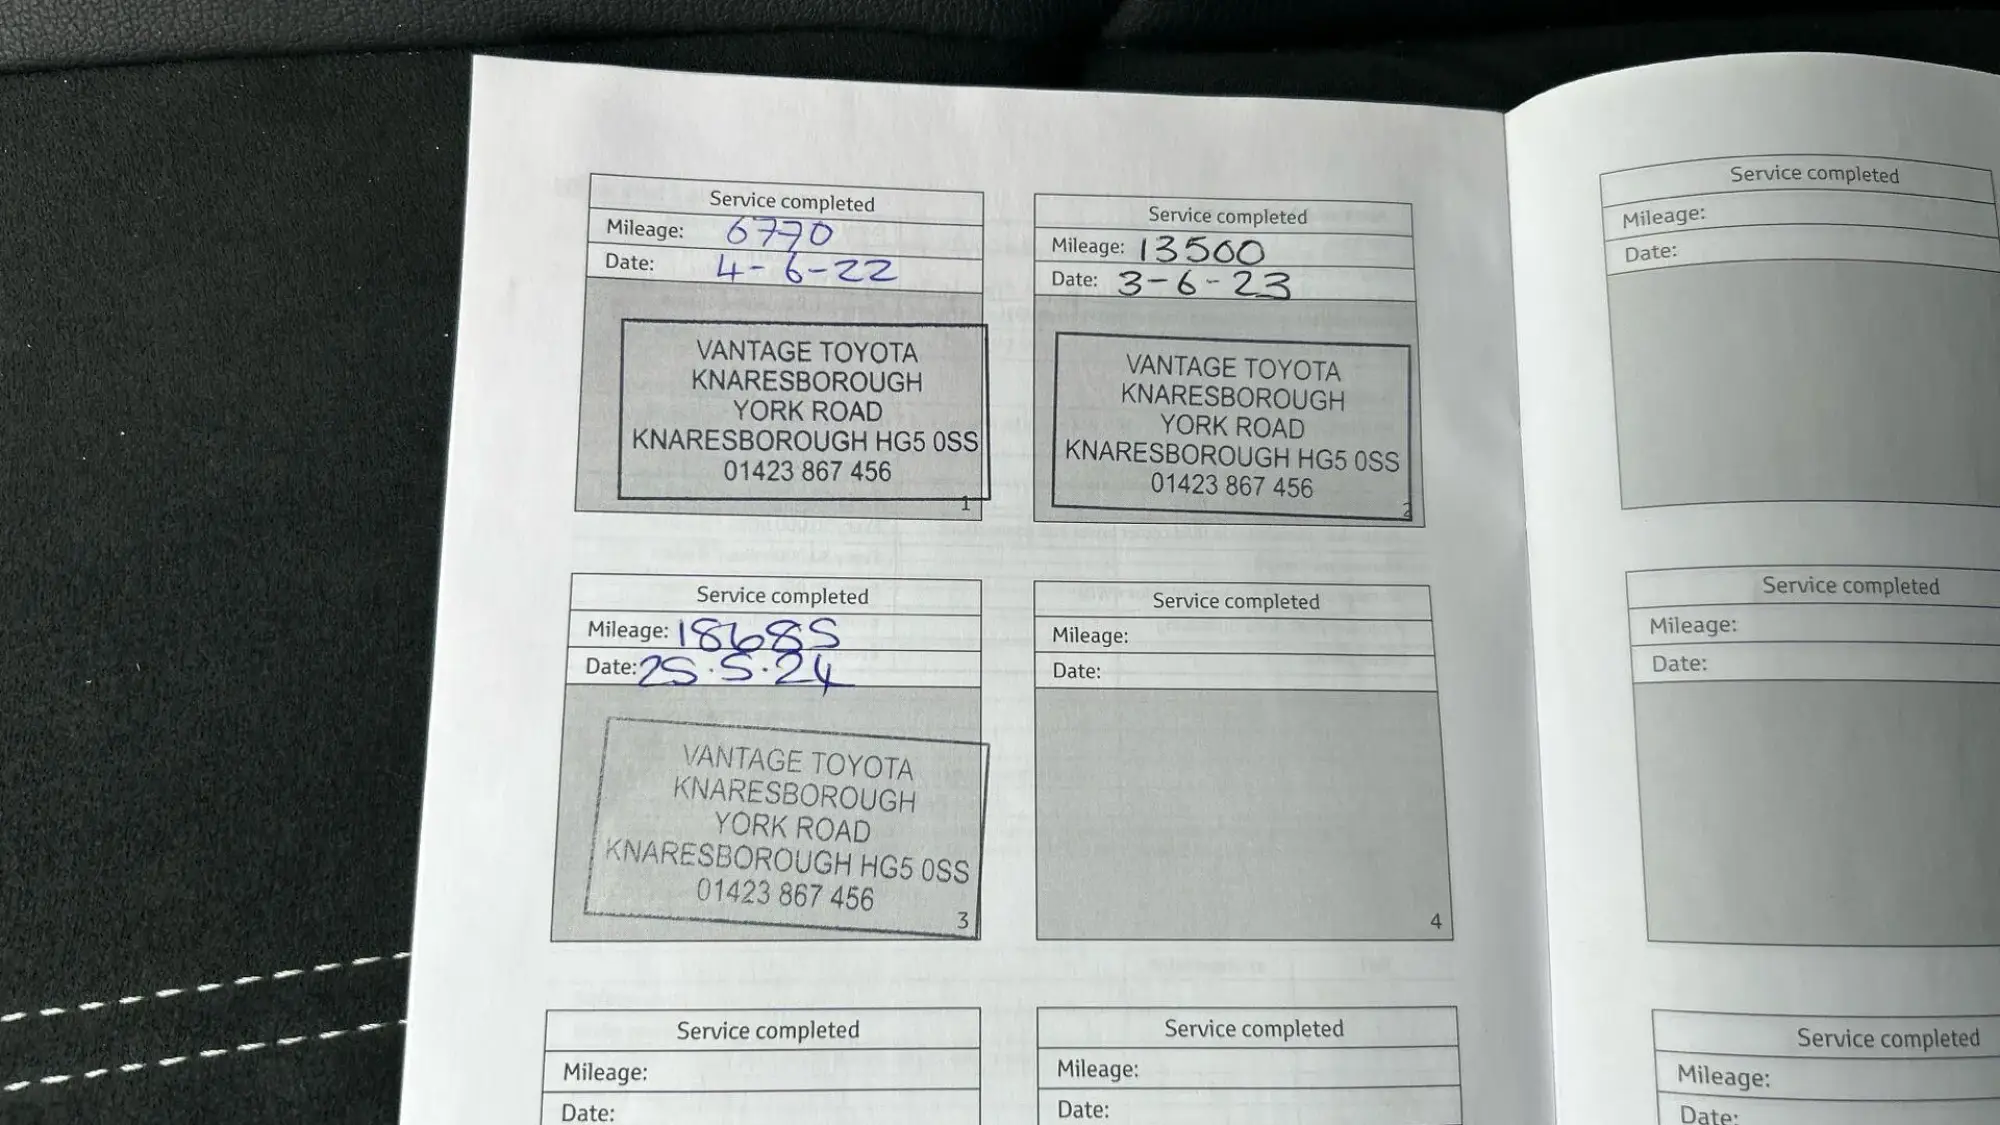 Service completed
Mileage: 6770
Date: 4-6-22
VANTAGE TOYOTA
KNARESBOROUGH
YORK ROAD
KNARESBOROUGH HG5 0SS
01423 867 456
1
Service completed
Mileage: 13500
Date: 3-6-23
VANTAGE TOYOTA
KNARESBOROUGH
YORK ROAD
KNARESBOROUGH HG5 0SS
01423 867 456
2
Service completed
Mileage: 18685
Date: 25.5.24
VANTAGE TOYOTA
KNARESBOROUGH
YORK ROAD
KNARESBOROUGH HG5 0SS
01423 867 456
3
Service completed
Mileage:
Date:
4
Service completed
Mileage:
Date:
Service completed
Mileage:
Date:
Service completed
Mileage:
Date:
Service completed
Mileage:
Date:
Service completed
Mileage:
Date: